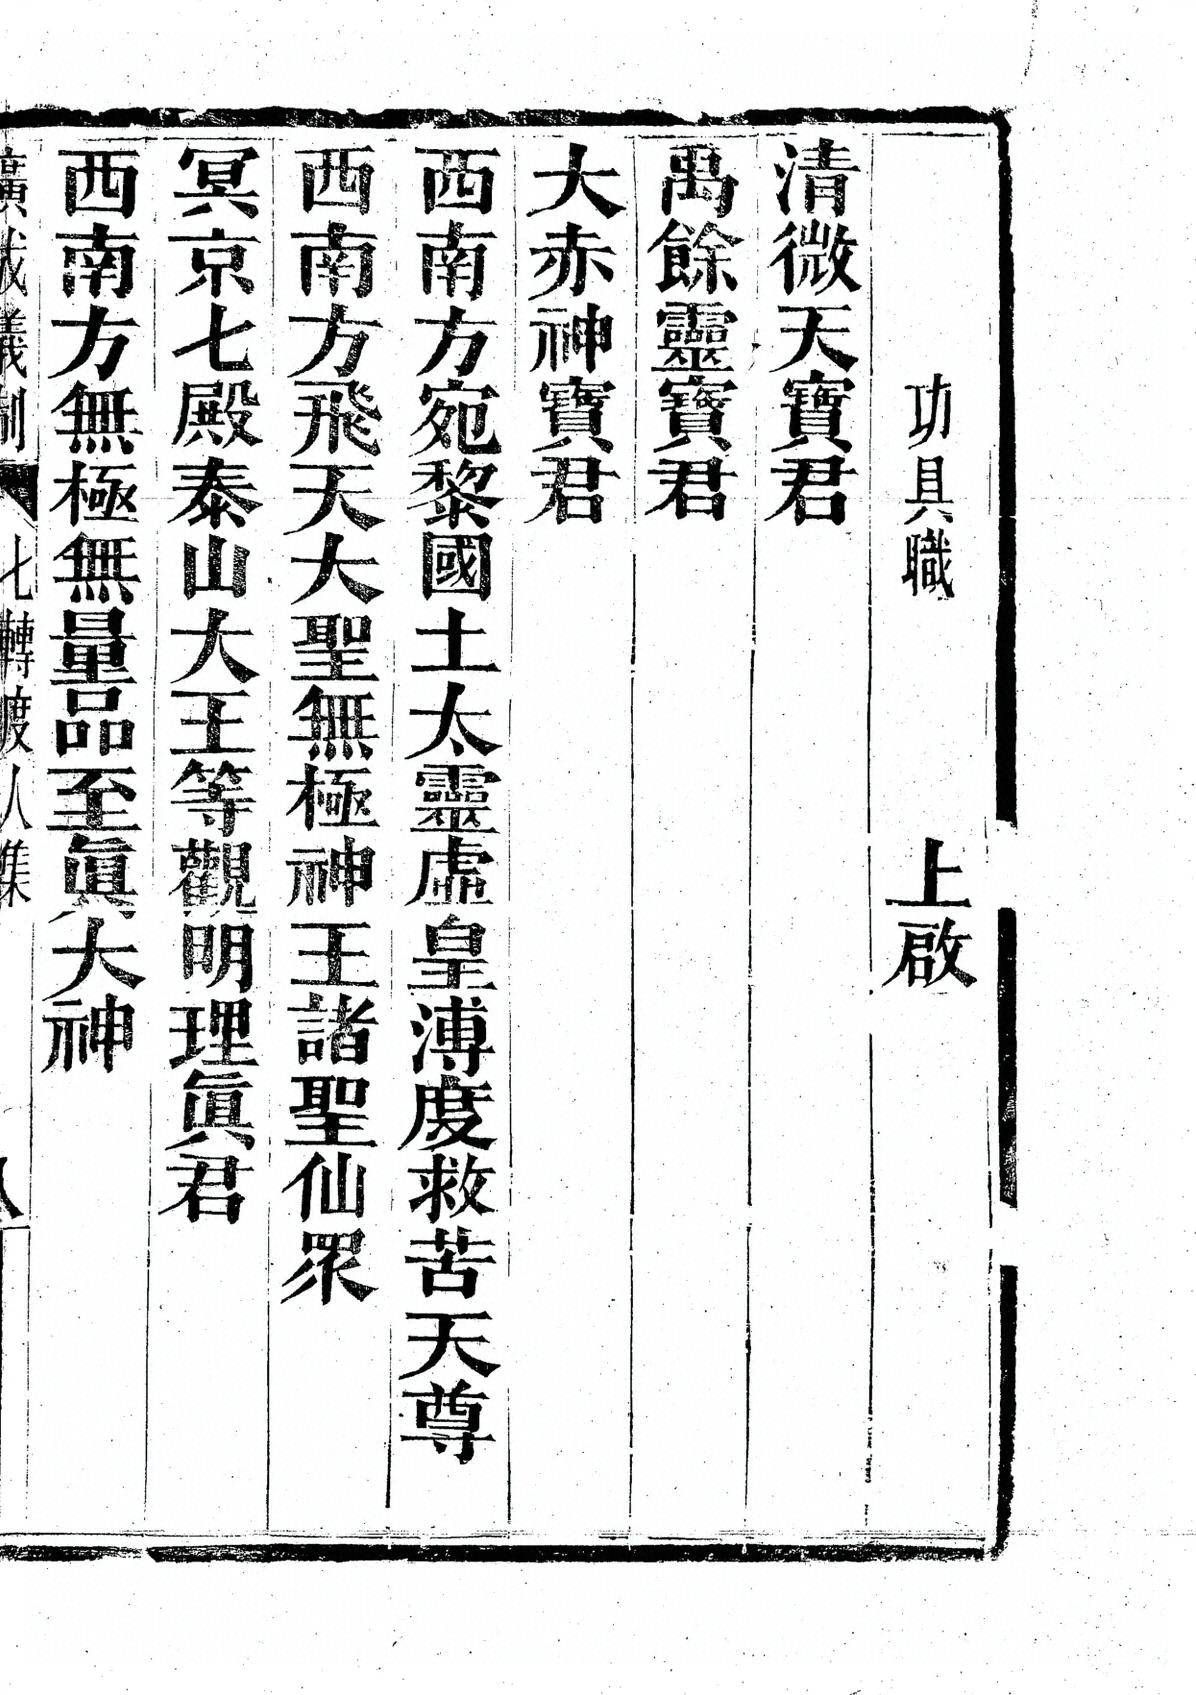 功具職　上啟
清微天寶君
禹餘靈寶君
大赤神寶君
西南方宛黎國土太靈虛皇溥度救苦天尊
西南方飛天大聖無極神王諸聖仙眾
冥京七殿泰山大王等觀明理眞君
西南方無極無量品至眞大神
廣成儀制　七轉度人集　八